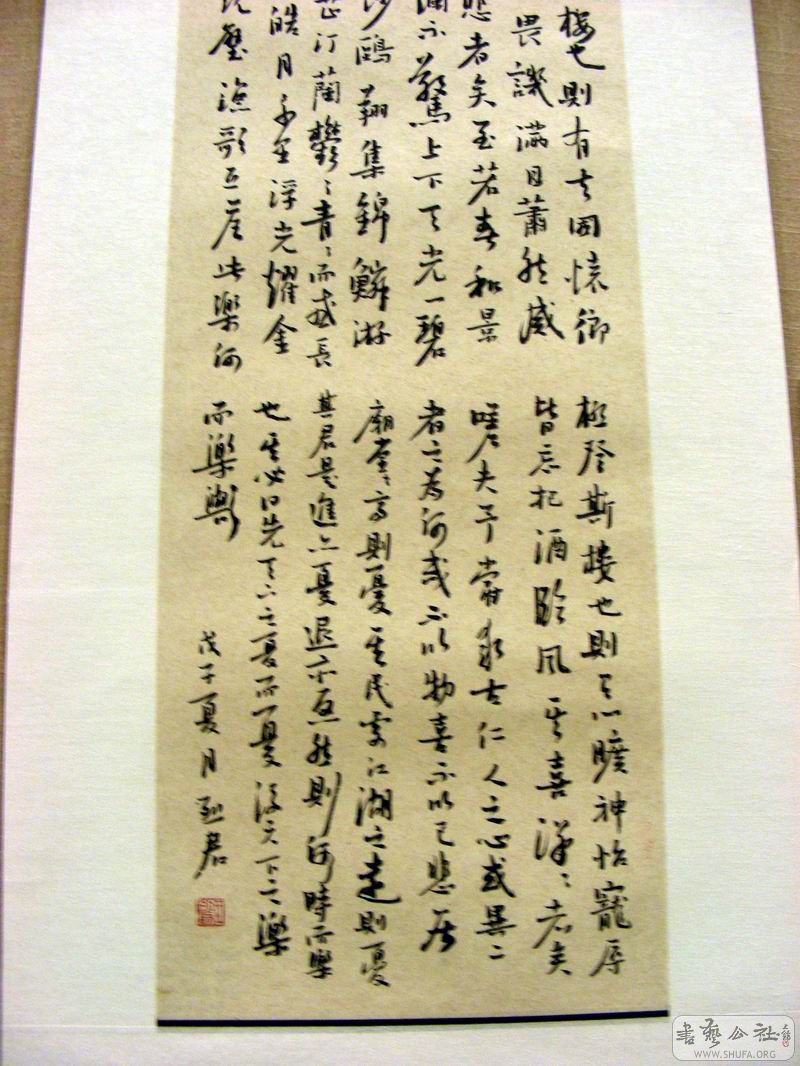 樓也則有去國懷鄉
畏譏滿目蕭然感
悲者矣至若春和景
瀾不驚上下天光一碧
沙鷗翔集錦鱗游
芷汀蘭鬱〻青〻而或長
皓月千里浮光耀金
沉璧漁歌互荅此樂何
極登斯樓也則有心曠神怡寵辱
皆忘把酒臨風其喜洋〻者矣
嗟夫予嘗求古仁人之心或異二
者之為何哉不以物喜不以己悲居
廟堂〻高則憂其民處江湖之遠則憂
其君是進亦憂退亦憂然則何時而樂
也其必曰先天下之憂而憂後天下之樂
而樂歟
戊子夏月
書藝公社
WWW.SHUFA.ORG